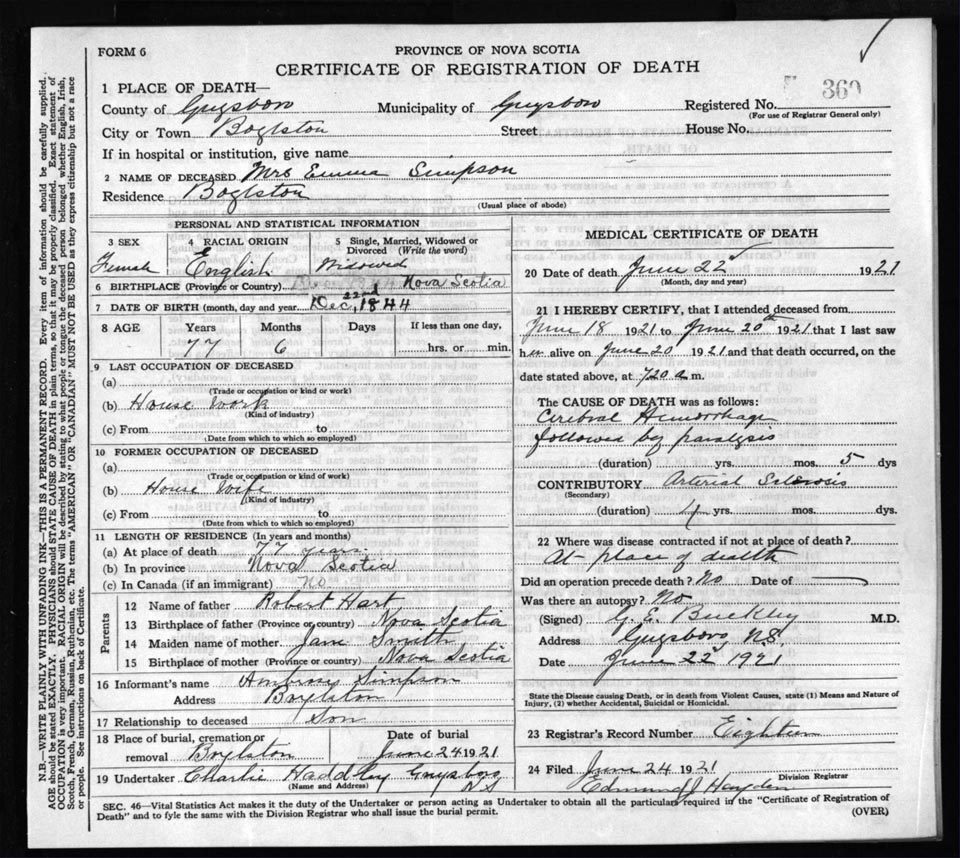 FORM 6
PROVINCE OF NOVA SCOTIA
CERTIFICATE OF REGISTRATION OF DEATH
1 PLACE OF DEATH—
County of Guysboro Municipality of Guysboro Registered No. 360
(For use of Registrar General only)
City or Town Boylston Street House No.
If in hospital or institution, give name
2 NAME OF DECEASED Mrs Emma Simpson
Residence Boylston
(Usual place of abode)
PERSONAL AND STATISTICAL INFORMATION
3 SEX 4 RACIAL ORIGIN 5 Single, Married, Widowed or Divorced (Write the word)
Female English Widowed
6 BIRTHPLACE (Province or Country) Nova Scotia
7 DATE OF BIRTH (month, day and year) Dec, 22nd 1844
8 AGE Years Months Days If less than one day,
77 6 hrs. or min.
9 LAST OCCUPATION OF DECEASED
(a)
(Trade or occupation or kind or work)
(b) House Work
(Kind of industry)
(c) From to
(Date from which to which so employed)
10 FORMER OCCUPATION OF DECEASED
(a)
(Trade or occupation or kind of work)
(b) House Wife
(Kind of industry)
(c) From to
(Date from which to which so employed)
11 LENGTH OF RESIDENCE (In years and months)
(a) At place of death 77 years
(b) In province Nova Scotia
(c) In Canada (if an immigrant) No
Parents
12 Name of father Robert Hart
13 Birthplace of father (Province or country) Nova Scotia
14 Maiden name of mother Jane Smith
15 Birthplace of mother (Province or country) Nova Scotia
16 Informant's name Ambrose Simpson
Address Boylston
17 Relationship to deceased Son
18 Place of burial, cremation or Date of burial
removal Boylston June 24 1921
19 Undertaker Charlie Haddley Guysboro N S
(Name and Address)
MEDICAL CERTIFICATE OF DEATH
20 Date of death June 22 1921
(Month, day and year)
21 I HEREBY CERTIFY, that I attended deceased from
June 18 1921 to June 20th 1921 that I last saw
her alive on June 20 1921 and that death occurred, on the
date stated above, at 720 a m.
The CAUSE OF DEATH was as follows:
Cerebral Hemorrhage
followed by paralysis
(duration) yrs. mos. 5 dys
CONTRIBUTORY Arterial Sclerosis
(Secondary)
(duration) yrs. mos. dys.
22 Where was disease contracted if not at place of death?
At place of death
Did an operation precede death? No Date of
Was there an autopsy? No
(Signed) G. E. Buckley M.D.
Address Guysboro N.S.
Date June 22d 1921
State the Disease causing Death, or in death from Violent Causes, state (1) Means and Nature of
Injury, (2) whether Accidental, Suicidal or Homicidal.
23 Registrar's Record Number Eighteen
24 Filed June 24 1921
Edmund J Hayden
Division Registrar
SEC. 46—Vital Statistics Act makes it the duty of the Undertaker or person acting as Undertaker to obtain all the particulars required in the "Certificate of Registration of
Death" and to fyle the same with the Division Registrar who shall issue the burial permit.
(OVER)
N.B.—WRITE PLAINLY WITH UNFADING INK—THIS IS A PERMANENT RECORD. Every item of information should be carefully supplied.
AGE should be stated EXACTLY. PHYSICIANS should STATE CAUSE OF DEATH in plain terms, so that it may be properly classified. Exact statement of
OCCUPATION is very important. RACIAL ORIGIN will be described by stating to what people or tongue the deceased person belonged whether English, Irish,
Scotch, French, German, Russian, Ruthenian, etc. The terms "AMERICAN" or "CANADIAN" MUST NOT BE USED as they express citizenship but not a race
or people. See instructions on back of Certificate.